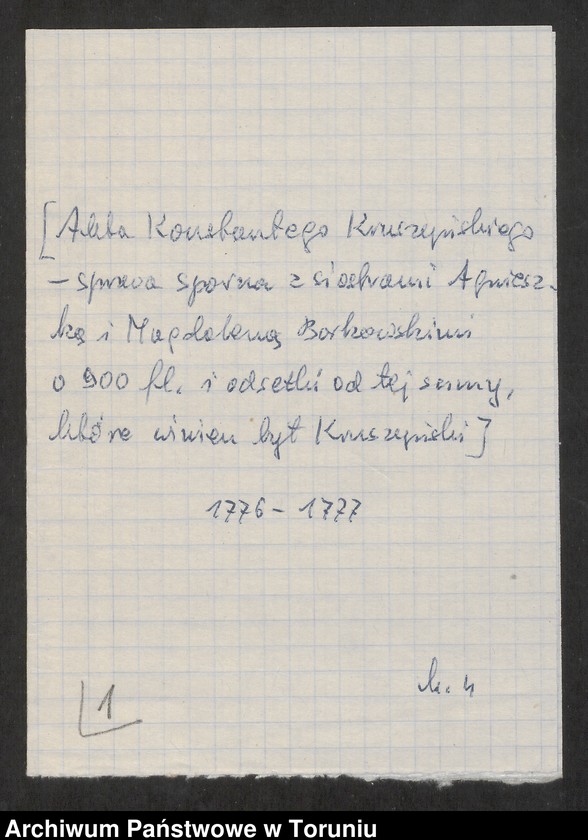 [Akta Konstantego Kruszyńskiego
- sprawa sporna z siostrami Agniesz-
ką i Magdaleną Borkowskimi
o 900 fl. i odsetki od tej sumy,
które winien był Kruszyński]
1776 - 1777
k. 4
1
Archiwum Państwowe w Toruniu